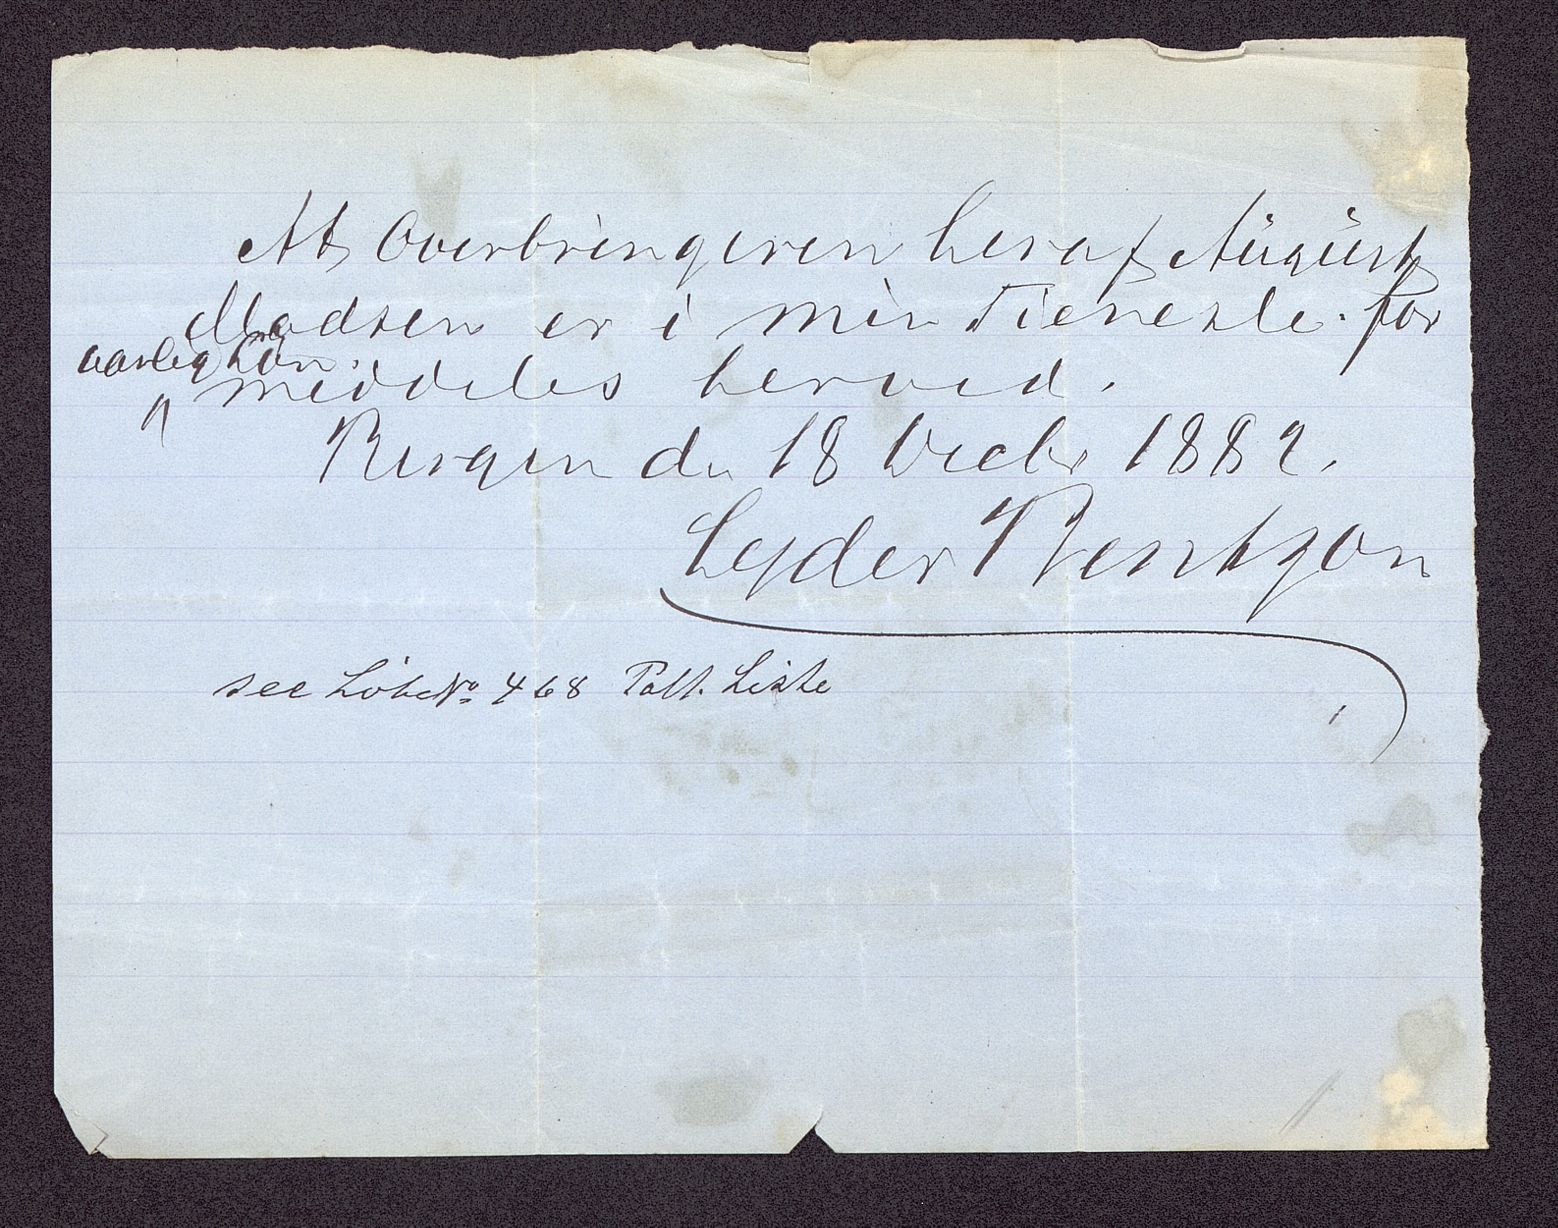 At Overbringeren heraf August
Madsen er i min Tieneste. for
aarlig Løn.
meddeles herved.
Bergen d. 18 Decbr 1882.
Lyder Bentzon
see LøbeNo 468 Patt. Liste